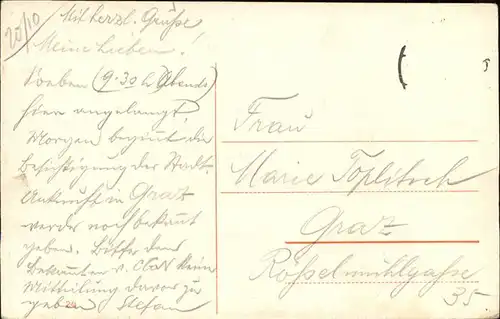 20/10
Mit herzl. Grüße!
Meine Lieben!
Soeben (9.30 h Abends)
hier angelangt,
Morgen beginnt die
Besichtigung der Stadt.
Ankunft in Graz
werde noch bekannt
geben. Bitte den
Bekannten v. keine
Mitteilung davon zu
geben Stefan
Frau
Marie Toplitsch
Graz
Rösselmühlgasse
35